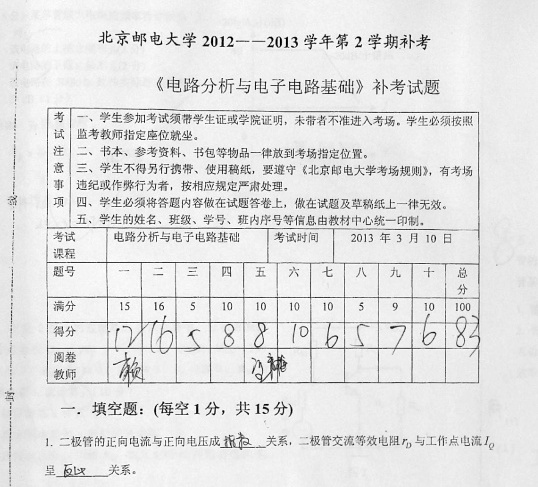 北京邮电大学 2012——2013 学年第 2 学期补考
《电路分析与电子电路基础》补考试题
考试注意事项
一、学生参加考试须带学生证或学院证明，未带者不准进入考场。学生必须按照
监考教师指定座位就坐。
二、书本、参考资料、书包等物品一律放到考场指定位置。
三、学生不得另行携带、使用稿纸，要遵守《北京邮电大学考场规则》，有考场
违纪或作弊行为者，按相应规定严肃处理。
四、学生必须将答题内容做在试题答卷上，做在试题及草稿纸上一律无效。
五、学生的姓名、班级、学号、班内序号等信息由教材中心统一印制。
考试课程 电路分析与电子电路基础 考试时间 2013 年 3 月 10 日
题号 一 二 三 四 五 六 七 八 九 十 总分
满分 15 16 5 10 10 10 10 5 9 10 100
得分 12 16 5 8 8 10 6 5 7 6 83
阅卷教师
一．填空题：(每空 1 分，共 15 分)
1. 二极管的正向电流与正向电压成 指数 关系，二极管交流等效电阻 r_D 与工作点电流 I_Q
呈 反比 关系。